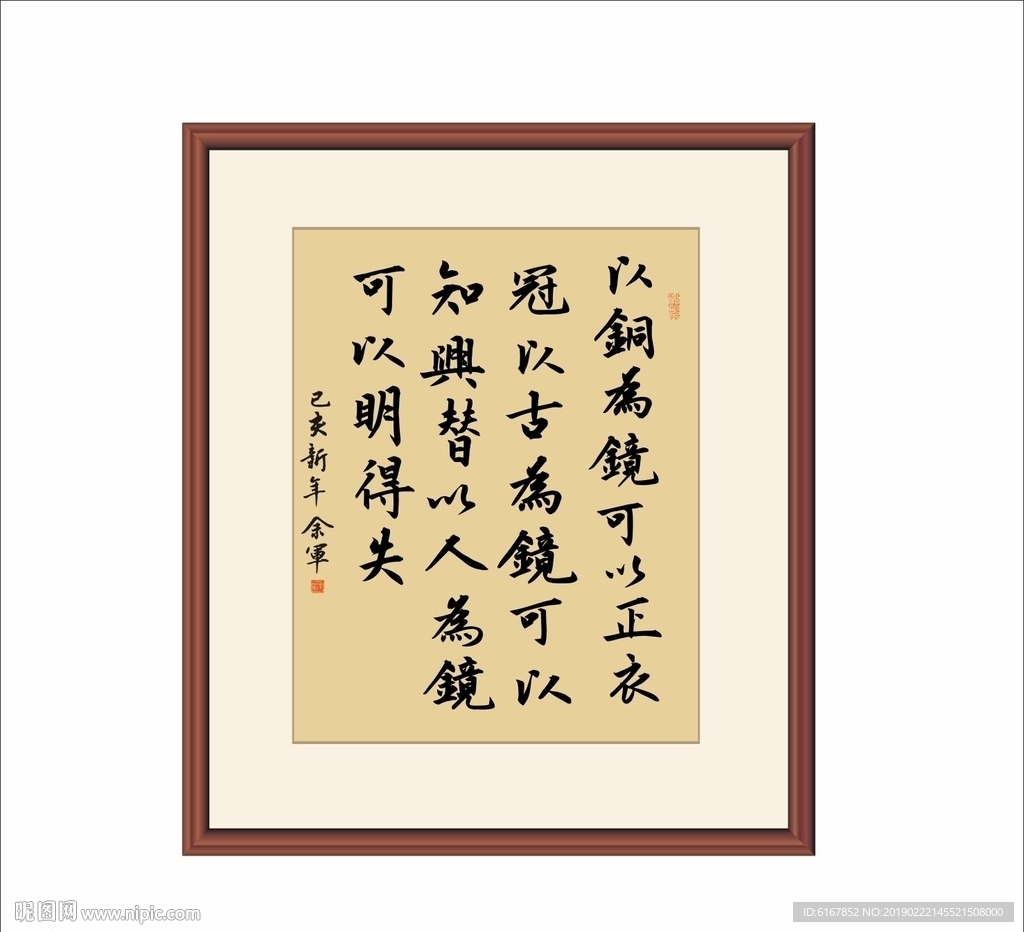 以銅為鏡可以正衣
冠以古為鏡可以
知興替以人為鏡
可以明得失
己亥新年 余軍
昵图网 www.nipic.com
ID:6167852 NO:20190222145521508000